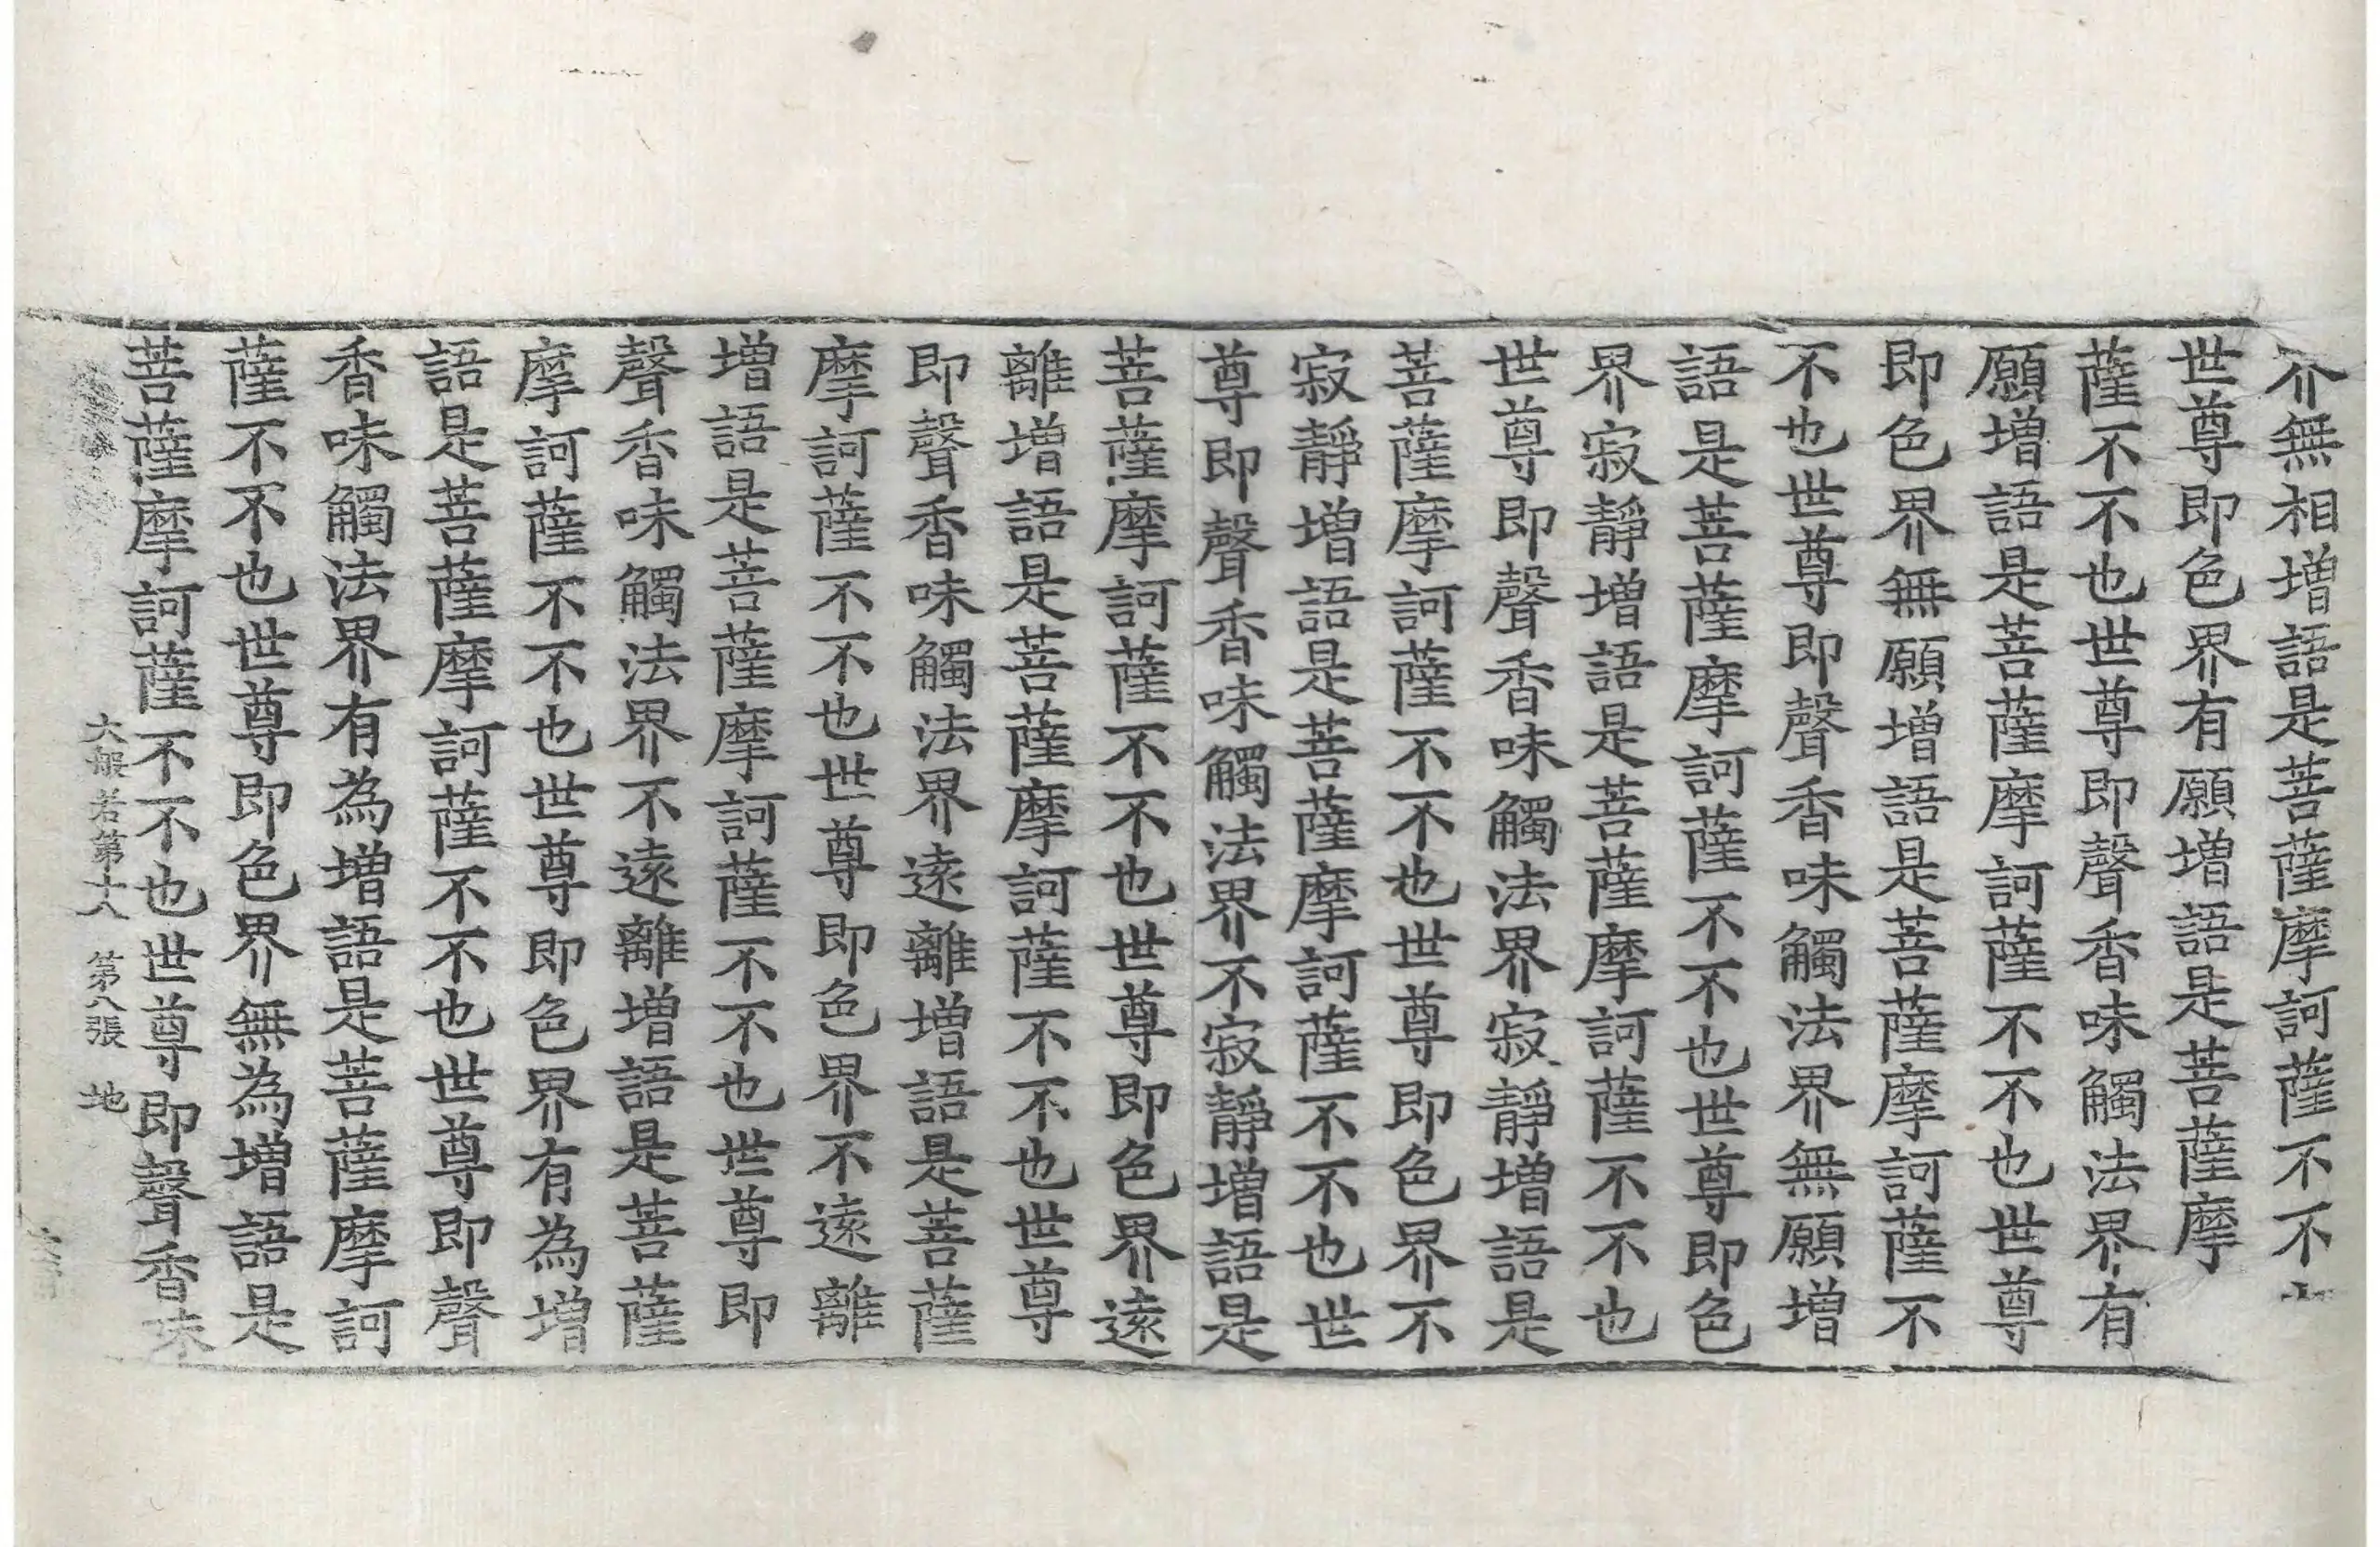 界無相增語是菩薩摩訶薩不不
世尊即色界有願增語是菩薩摩
薩不不也世尊即聲香味觸法界有
願增語是菩薩摩訶薩不不也世尊
即色界無願增語是菩薩摩訶薩不
不也世尊即聲香味觸法界無願增
語是菩薩摩訶薩不不也世尊即色
界寂靜增語是菩薩摩訶薩不不也
世尊即聲香味觸法界寂靜增語是
菩薩摩訶薩不不也世尊即色界不
寂靜增語是菩薩摩訶薩不不也世
尊即聲香味觸法界不寂靜增語是
菩薩摩訶薩不不也世尊即色界遠
離增語是菩薩摩訶薩不不也世尊
即聲香味觸法界遠離增語是菩薩
摩訶薩不不也世尊即色界不遠離
增語是菩薩摩訶薩不不也世尊即
聲香味觸法界不遠離增語是菩薩
摩訶薩不不也世尊即色界有為增
語是菩薩摩訶薩不不也世尊即聲
香味觸法界有為增語是菩薩摩訶
薩不不也世尊即色界無為增語是
菩薩摩訶薩不不也世尊即聲香味
大般若第十八 第八張 地